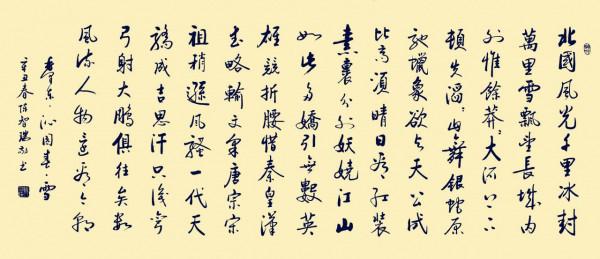 北國風光千里冰封
萬里雪飄望長城内
外惟餘莽々大河上下
頓失滔々山舞銀蛇原
馳蠟象欲与天公試
比高須晴日看红装
素裹分外妖娆江山
如此多嬌引無數英
雄競折腰惜秦皇漢
武略輸文采唐宗宋
祖稍遜風騷一代天
驕成吉思汗只識彎
弓射大鵬俱往矣数
風流人物還看今朝
毛泽东·沁园春·雪
辛丑春陈智瑞书